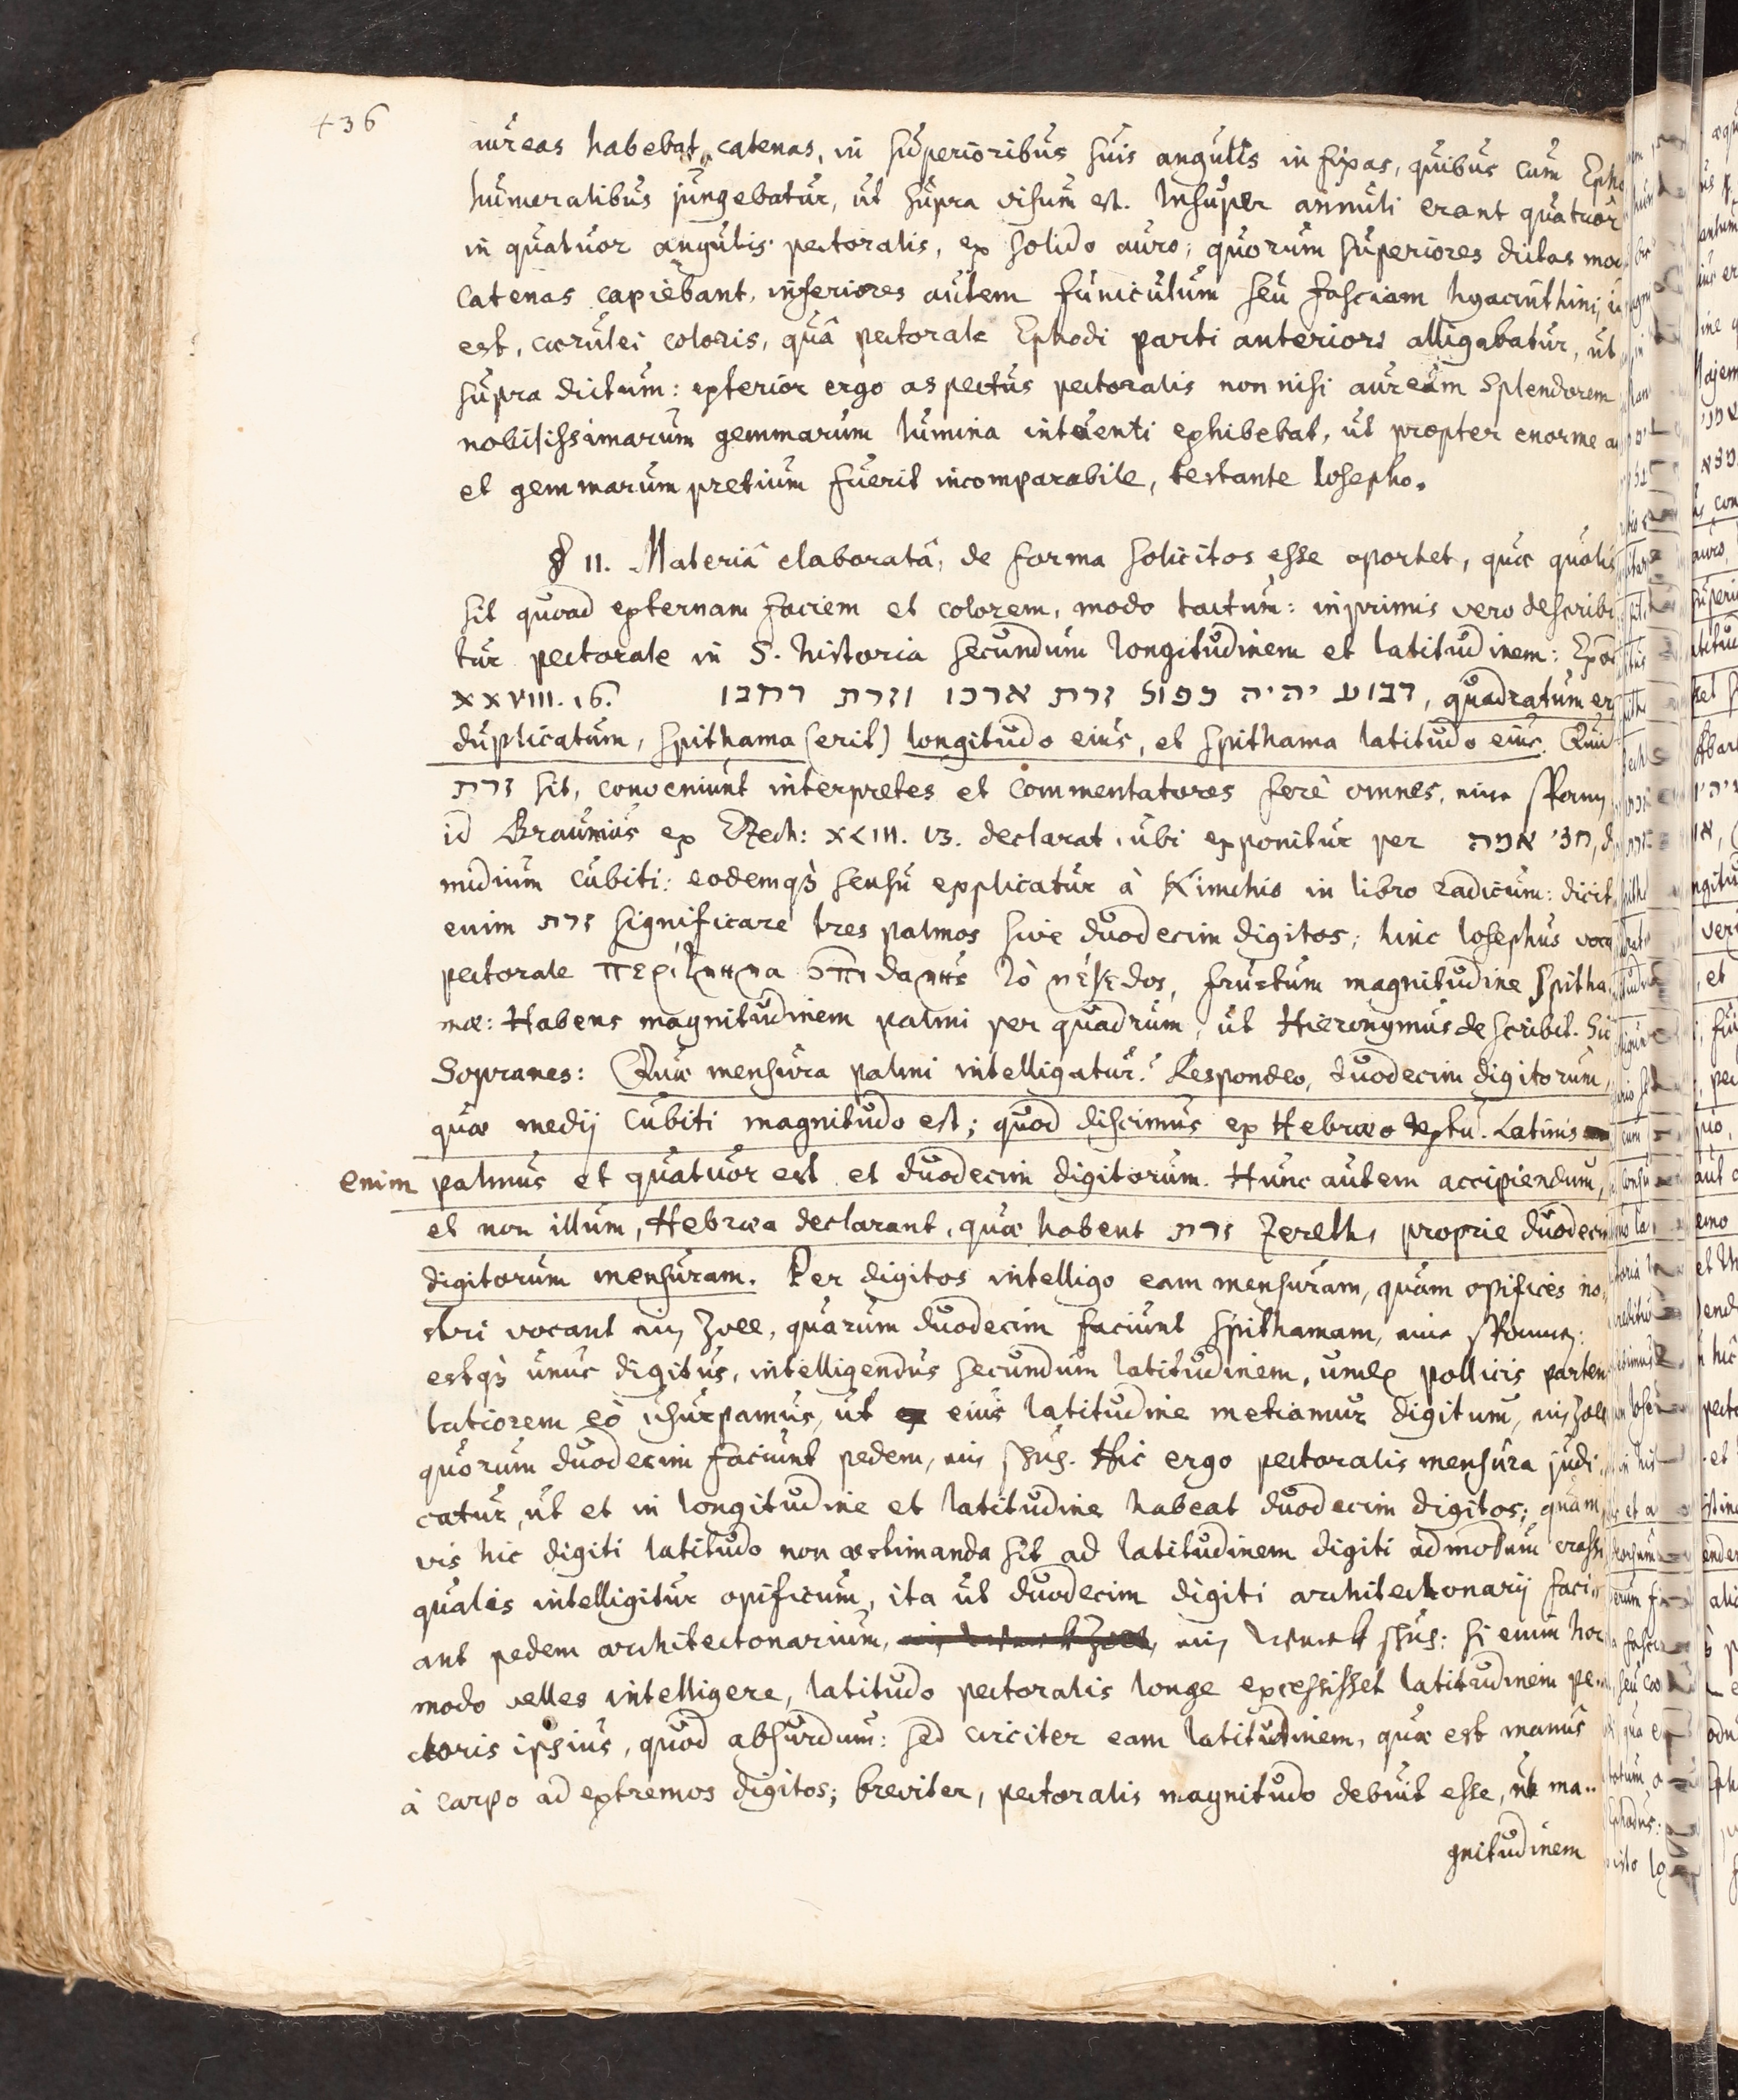 436
aureas habebat catenas, in superioribus suis angulis infixas, quibus cum Epho
humeralibus jungebatur, ut supra visum est. Insuper annuli erant quatuor
in quatuor angulis pectoralis, ex solido auro; quorum superiores dictas mo
catenas capiebant, inferiores autem funiculum seu fasciam hyacinthini,
est, cærulei coloris, quâ pectorale Ephodi parti anteriori alligabatur, ut
supra dictum: exterior ergo aspectus pectoralis non nisi aureum splendorem
nobilissimarum gemmarum lumina intuenti exhibebat, ut propter enorme
et gemmarum pretium fuerit incomparabile, testante Josepho.
§ 11. Materiâ elaboratâ, de forma solicitos esse oportet, quæ qualis
sit quoad externam faciem et colorem, modo tactum: inprimis vero describi
tur pectorale in S. historia secundum longitudinem et latitudinem: Exod
XXVIII. 16. רבוע יהיה כפול זרת ארכו וזרת רחבו, quadratum er
duplicatum, spithama (erit) longitudo eius, et spithama latitudo eius. Quid
זרת sit, conveniunt interpretes et commentatores ferè omnes, eine Spann
id Braunius ex Ezech: XLIII. 13. declarat, ubi exponitur per חצי אמה, d
midium cubiti: eodemq3 sensu explicatur à Kimchio in libro radicum: dicit
enim זרת significare tres palmos sive duodecim digitos; hinc Josephus voca
pectorale περίτμημα σπιθαμῆς τὸ μέγεθος, frustum magnitudine spitha
mæ: Habens magnitudinem palmi per quadrum, ut Hieronymus describit. Sic
Sopranes: Quæ mensura palmi intelligatur? Respondeo, duodecim digitorum,
quæ medij cubiti magnitudo est; quod discimus ex Hebræo textu. Latinis
enim palmus et quatuor est et duodecim digitorum. Hunc autem accipiendum,
et non illum, Hebræa declarant, quæ habent זרת Zereth, proprie duodecim
digitorum mensuram. Per digitos intelligo eam mensuram, quam opifices no,
stri vocant ein Zoll, quarum duodecim faciunt spithamam, eine Spanne:
estq3 unus digitus, intelligendus secundum latitudinem, unde pollicis partem
latiorem eò usurpamus, ut eius latitudine metiamur digitum, ein Zoll
quorum duodecim faciunt pedem, ein Schuh. Hic ergo pectoralis mensura judi,
catur, ut et in longitudine et latitudine habeat duodecim digitos; quam
vis hic digiti latitudo non æstimanda sit ad latitudinem digiti admodum crassi
qualis intelligitur opificum, ita ut duodecim digiti architectonarij faci,,
ant pedem architectonarium, ein Werck Schuh: si enim hoc
modo velles intelligere, latitudo pectoralis longe excessisset latitudinem pe,,
ctoris ipsius, quod absurdum: sed circiter eam latitudinem, quæ est manus
à carpo ad extremos digitos; breviter, pectoralis magnitudo debuit esse, ut ma..
gnitudinem